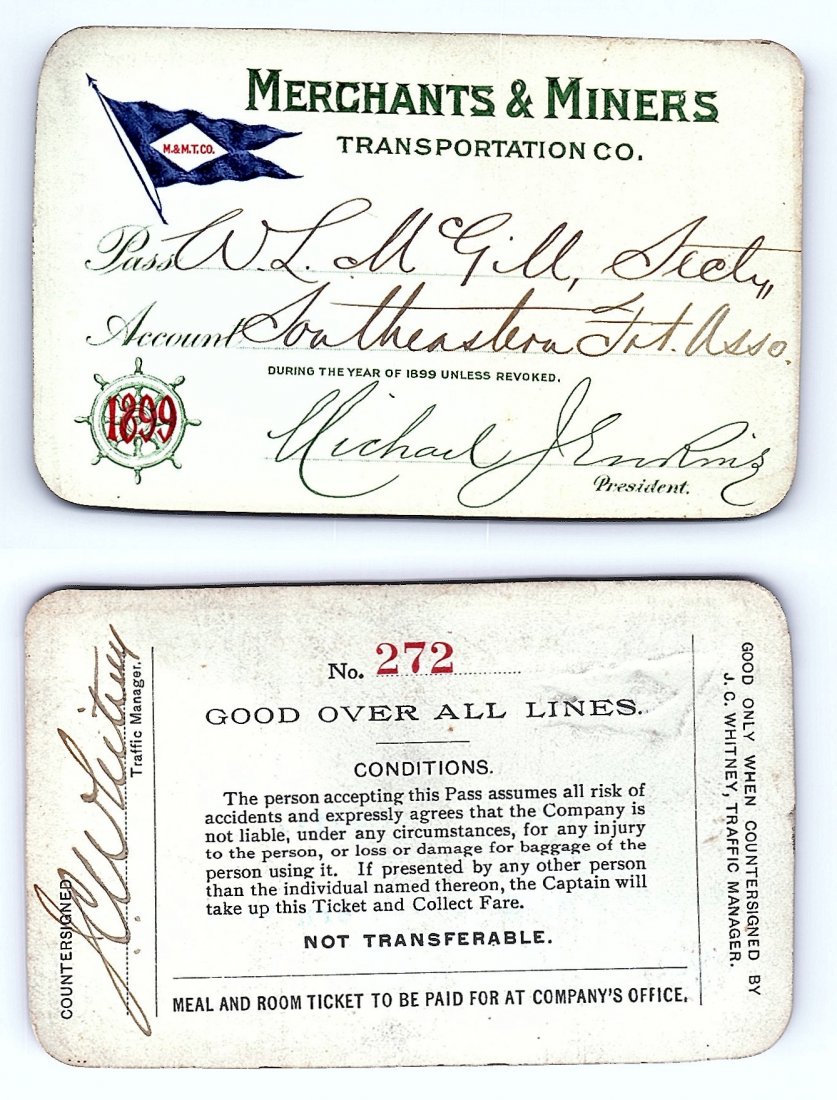 MERCHANTS & MINERS
TRANSPORTATION CO.
M.&M.T.CO.
Pass W. L. McGill, Secty,,
Account Southeastern Frt. Asso.
DURING THE YEAR OF 1899 UNLESS REVOKED.
1899
Michael Jenkins
President.
No. 272
GOOD OVER ALL LINES.
CONDITIONS.
The person accepting this Pass assumes all risk of
accidents and expressly agrees that the Company is
not liable, under any circumstances, for any injury
to the person, or loss or damage for baggage of the
person using it. If presented by any other person
than the individual named thereon, the Captain will
take up this Ticket and Collect Fare.
NOT TRANSFERABLE.
MEAL AND ROOM TICKET TO BE PAID FOR AT COMPANY'S OFFICE.
COUNTERSIGNED
J. C. Whitney
Traffic Manager.
GOOD ONLY WHEN COUNTERSIGNED BY
J. C. WHITNEY, TRAFFIC MANAGER.